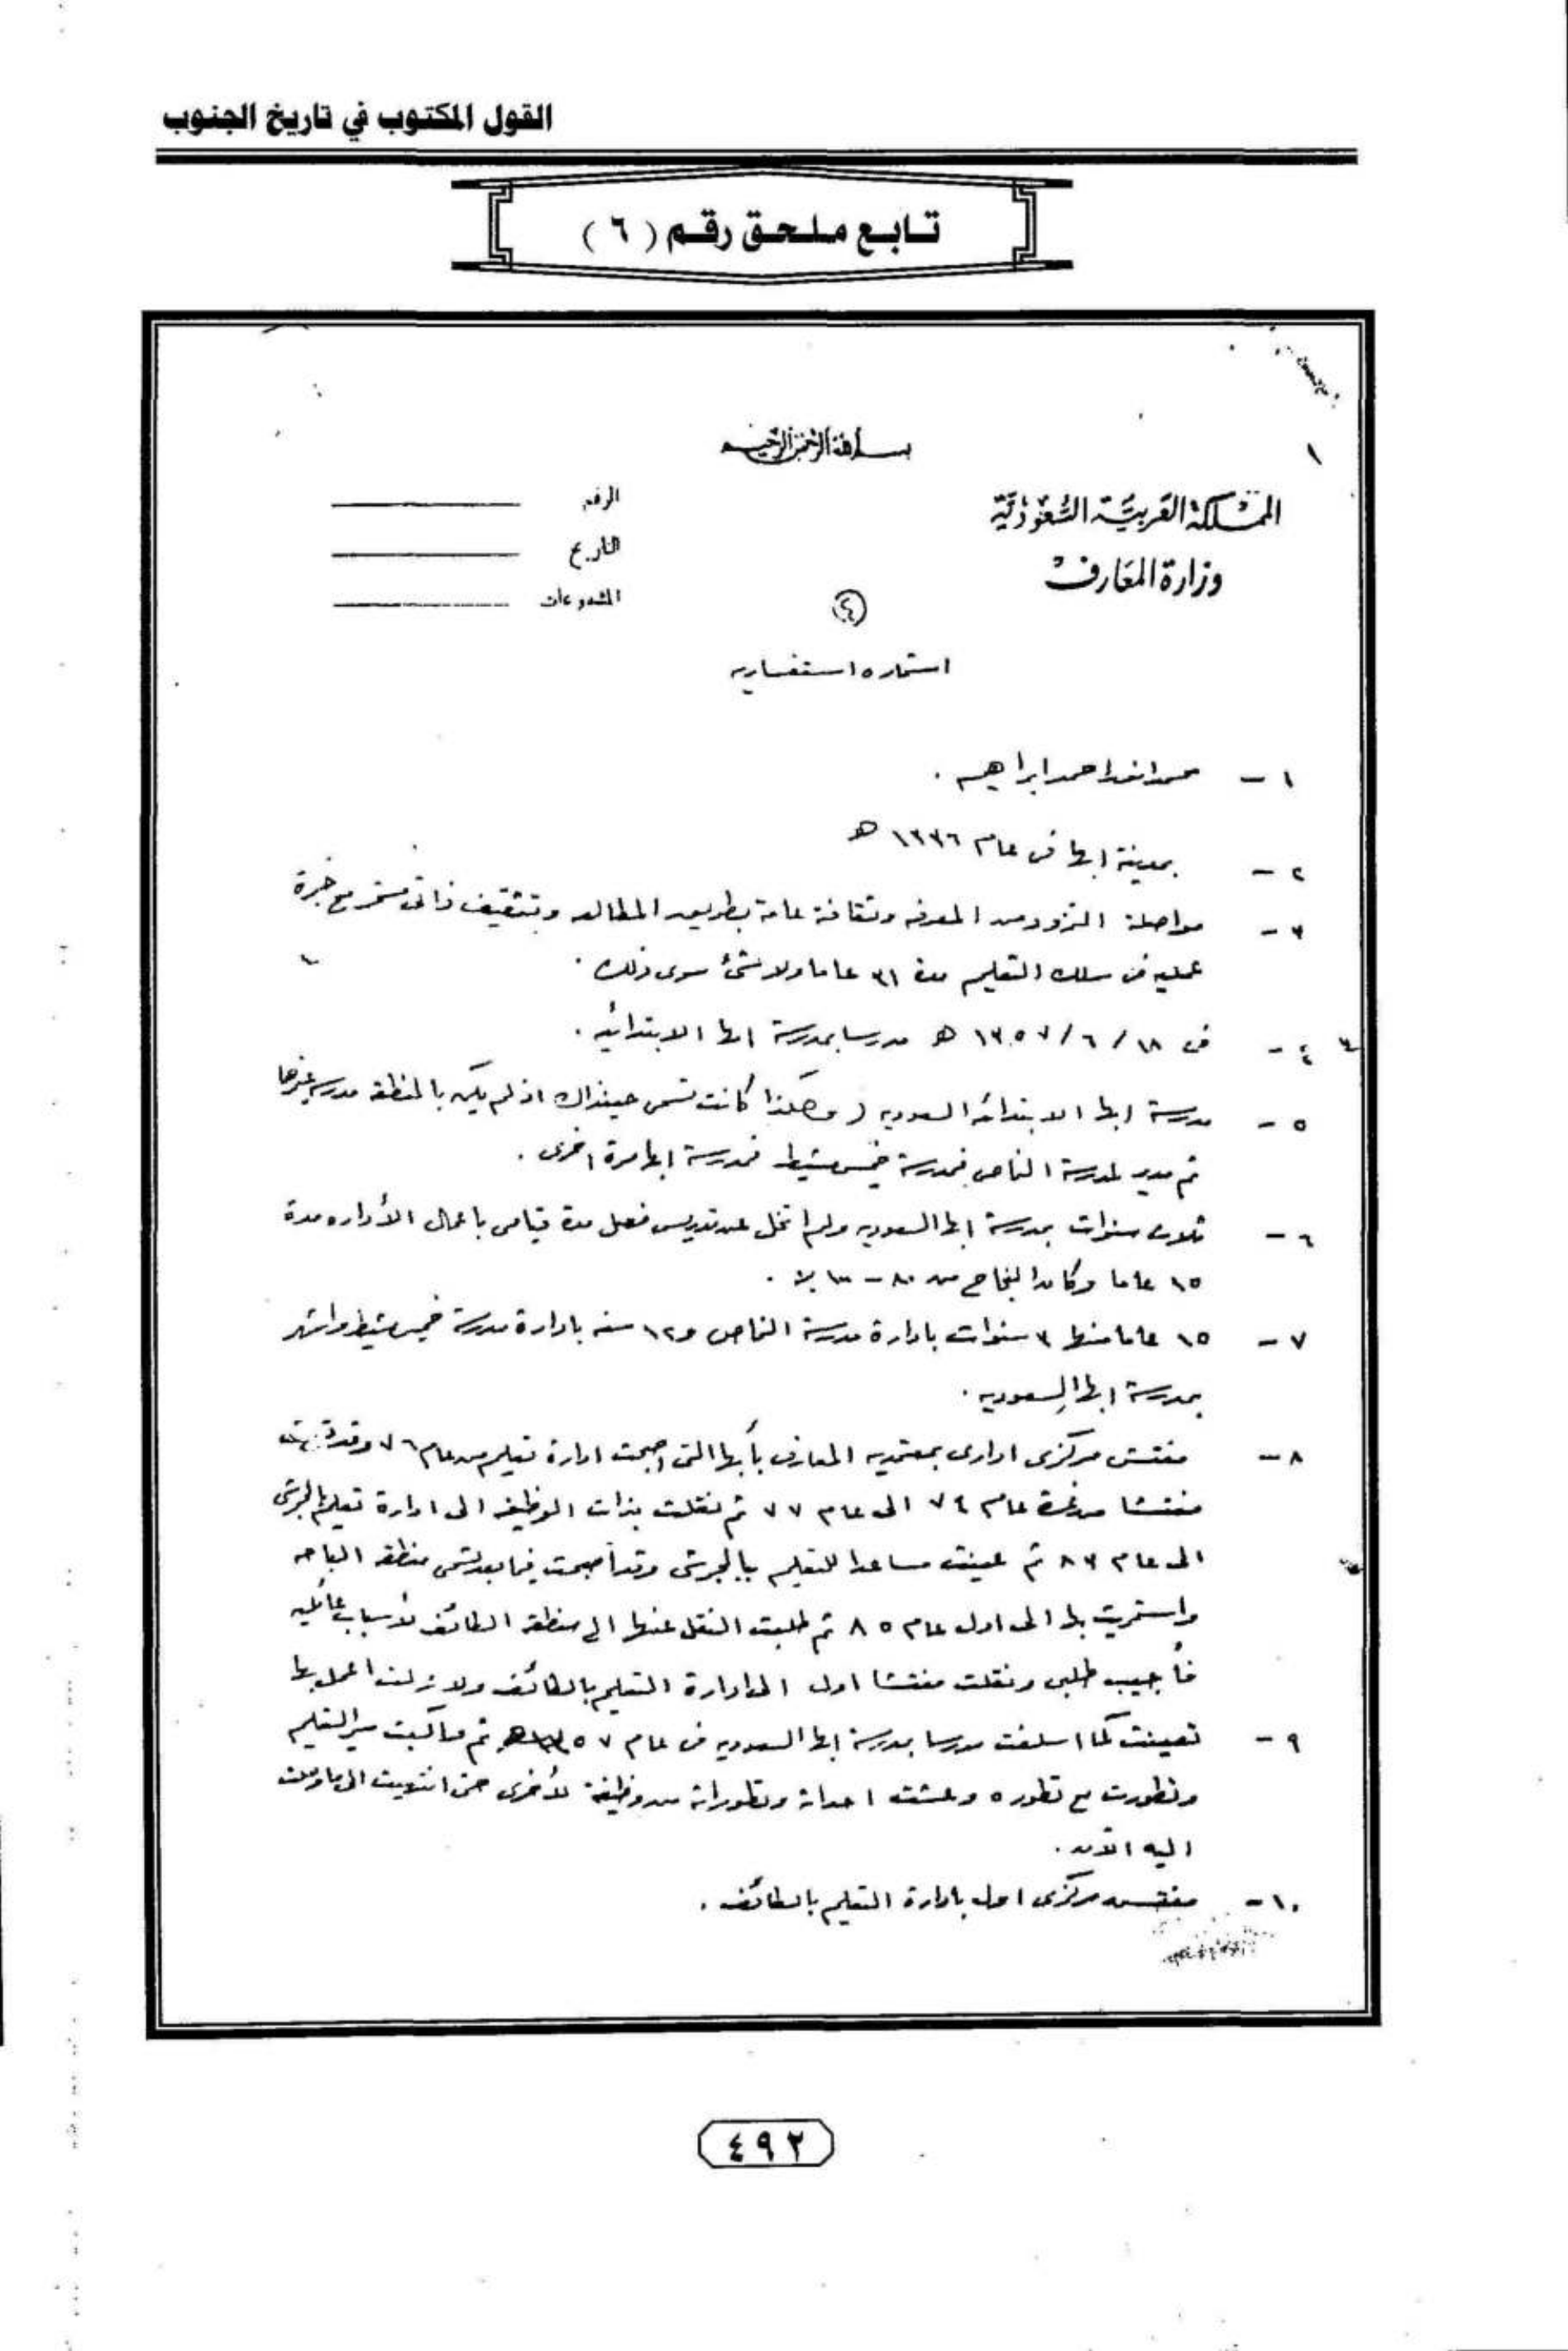 القول المكتوب في تاريخ الجنوب
تابع ملحق رقم ( ٦ )
١
بسم الله الرحمن الرحيم
المملكة العربية السعودية
وزارة المعارف
الرقم
التاريخ
المشفوعات
٤
استماره استفساريه
١ - محمد انور احمد ابراهيم .
٢ - بمدينة ابها فى عام ١٣٣٦ هـ
٣ - مواصلة التزود من المعرفه وثقافة عامة بطريق المطالعه وتثقيف ذاتى مستمر مع خبرة
عمليه فى سلك التعليم مدة ٣١ عاما ولا شئ سوى ذلك .
٤ - فى ١٨ / ٦ / ١٣٥٧ هـ مدرسا بمدرسة ابها الابتدائيه .
٥ - مدرسة ابها الابتدائه السعوديه ( وهكذا كانت تسمى حينذاك اذ لم يكن بالمنطقه مدرسه غيرها
ثم مدير لمدرسة النماص فمدرسة خميس مشيط فمدرسة ابها مرة اخرى .
٦ - ثلاث سنوات بمدرسة ابها السعوديه ولم اتخل عن تدريس فصل مدة قيامى باعمال الأداره مدة
١٥ عاما وكان النجاح من ٨٠ - ١٠٠ ٪ .
٧ - ١٥ عاما منها ٣ سنوات بادارة مدرسة النماص و١٢ سنه بادارة مدرسة خميس مشيط واشهر
بمدرسة ابها السعوديه .
٨ - مفتش مركزى ادارى بمعتمديه المعارف بأبها التى اصبحت ادارة تعليم من عام ٧٦ وقد
مفتشا من غرة عام ٧٤ الى عام ٧٧ ثم نقلت بذات الوظيفه الى ادارة تعليم بالجرشى
الى عام ٨٣ ثم عينت مساعدا للتعليم ببالجرشى وقد اصبحت فيما بعد تسمى منطقه الباحه
واستمريت بها الى اول عام ٨٥ ثم طلبت النقل عنها الى منطقه الطائف لأسباب عائليه
فأجيب طلبى ونقلت مفتشا اول الى ادارة التعليم بالطائف ولا زلت اعمل بها
٩ - تعينت كما اسلفت مدرسا بمدرسة ابها السعوديه فى عام ١٣٥٧ هـ ثم واكبت سير التعليم
وتطورت مع تطوره وعشت احداثه وتطوراته من وظيفة لأخرى حتى انتهيت الى ما وصلت
اليه الآن .
١٠ - مفتش مركزى اول بادارة التعليم بالطائف .
٤٩٢